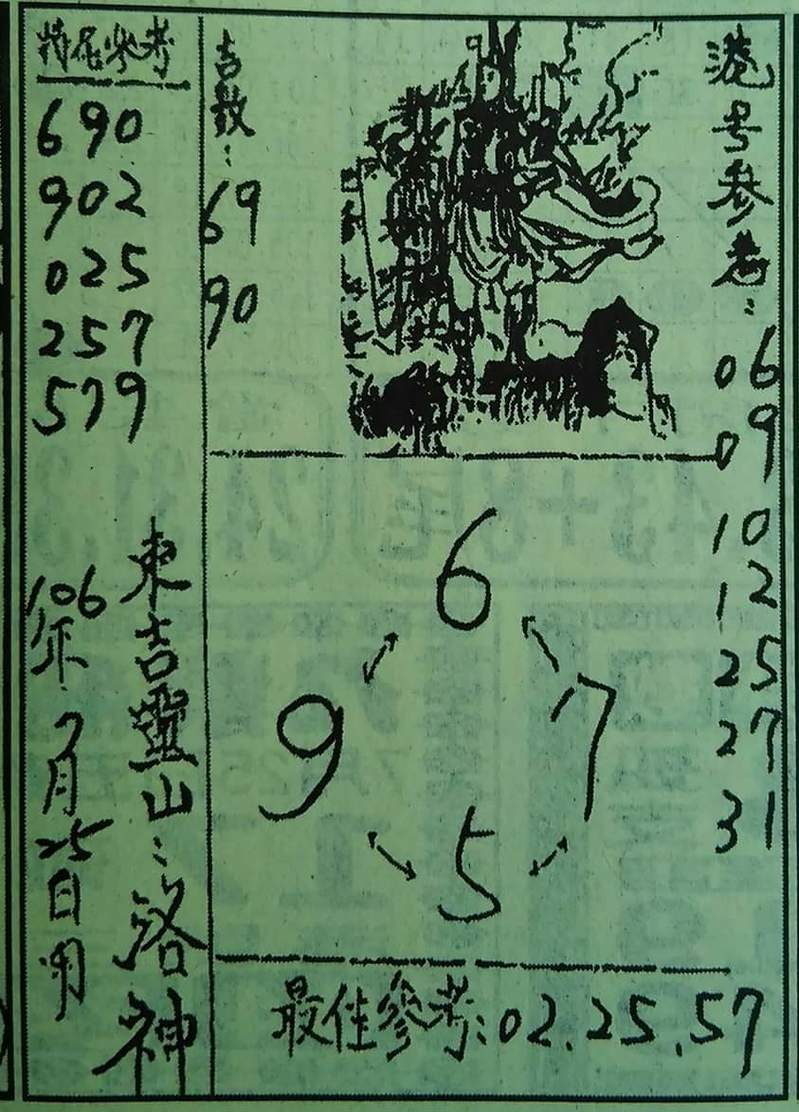 港号參考：
06
09
10
12
25
27
31
吉数：
69
90
6
9
7
5
最佳參考：02.25.57
特尾參考
690
902
025
257
579
東吉靈山：洛神
106年.7月25日用